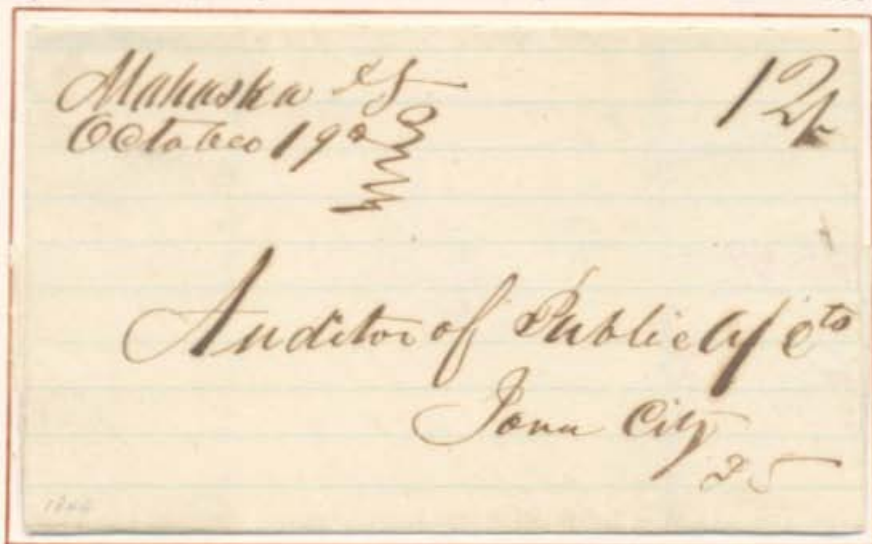 Mahaska
October 19
12
Auditor of Public A/cts
Iowa City